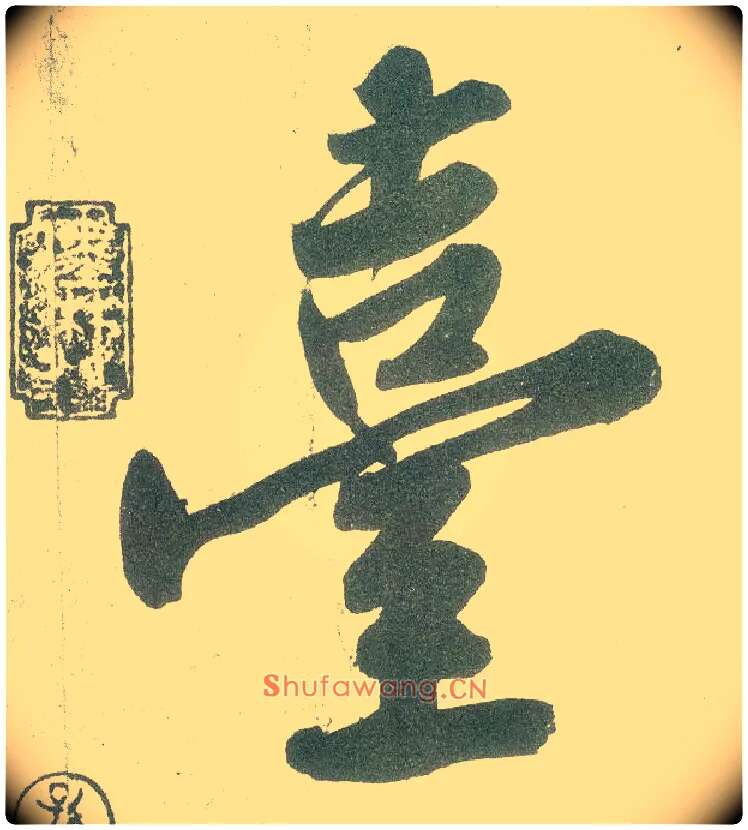 臺
Shufawang.CN